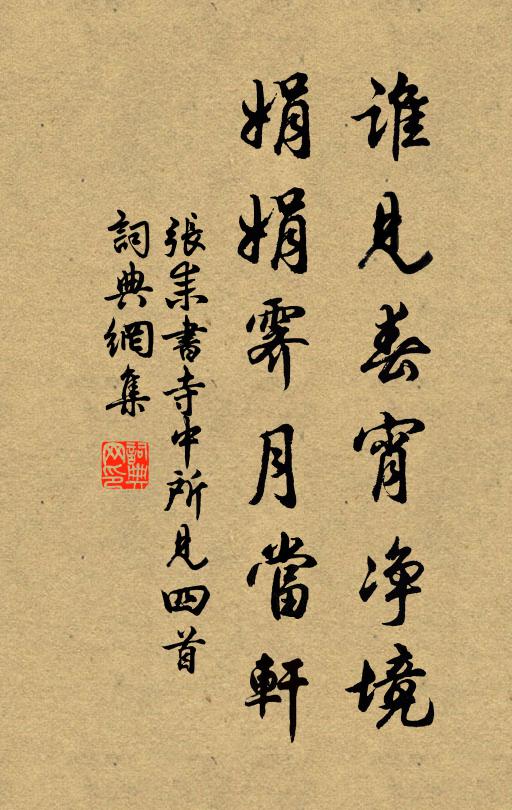 誰見春宵净境
娟娟霽月當軒
張耒書寺中所見四首
詞典網集
詞典网印